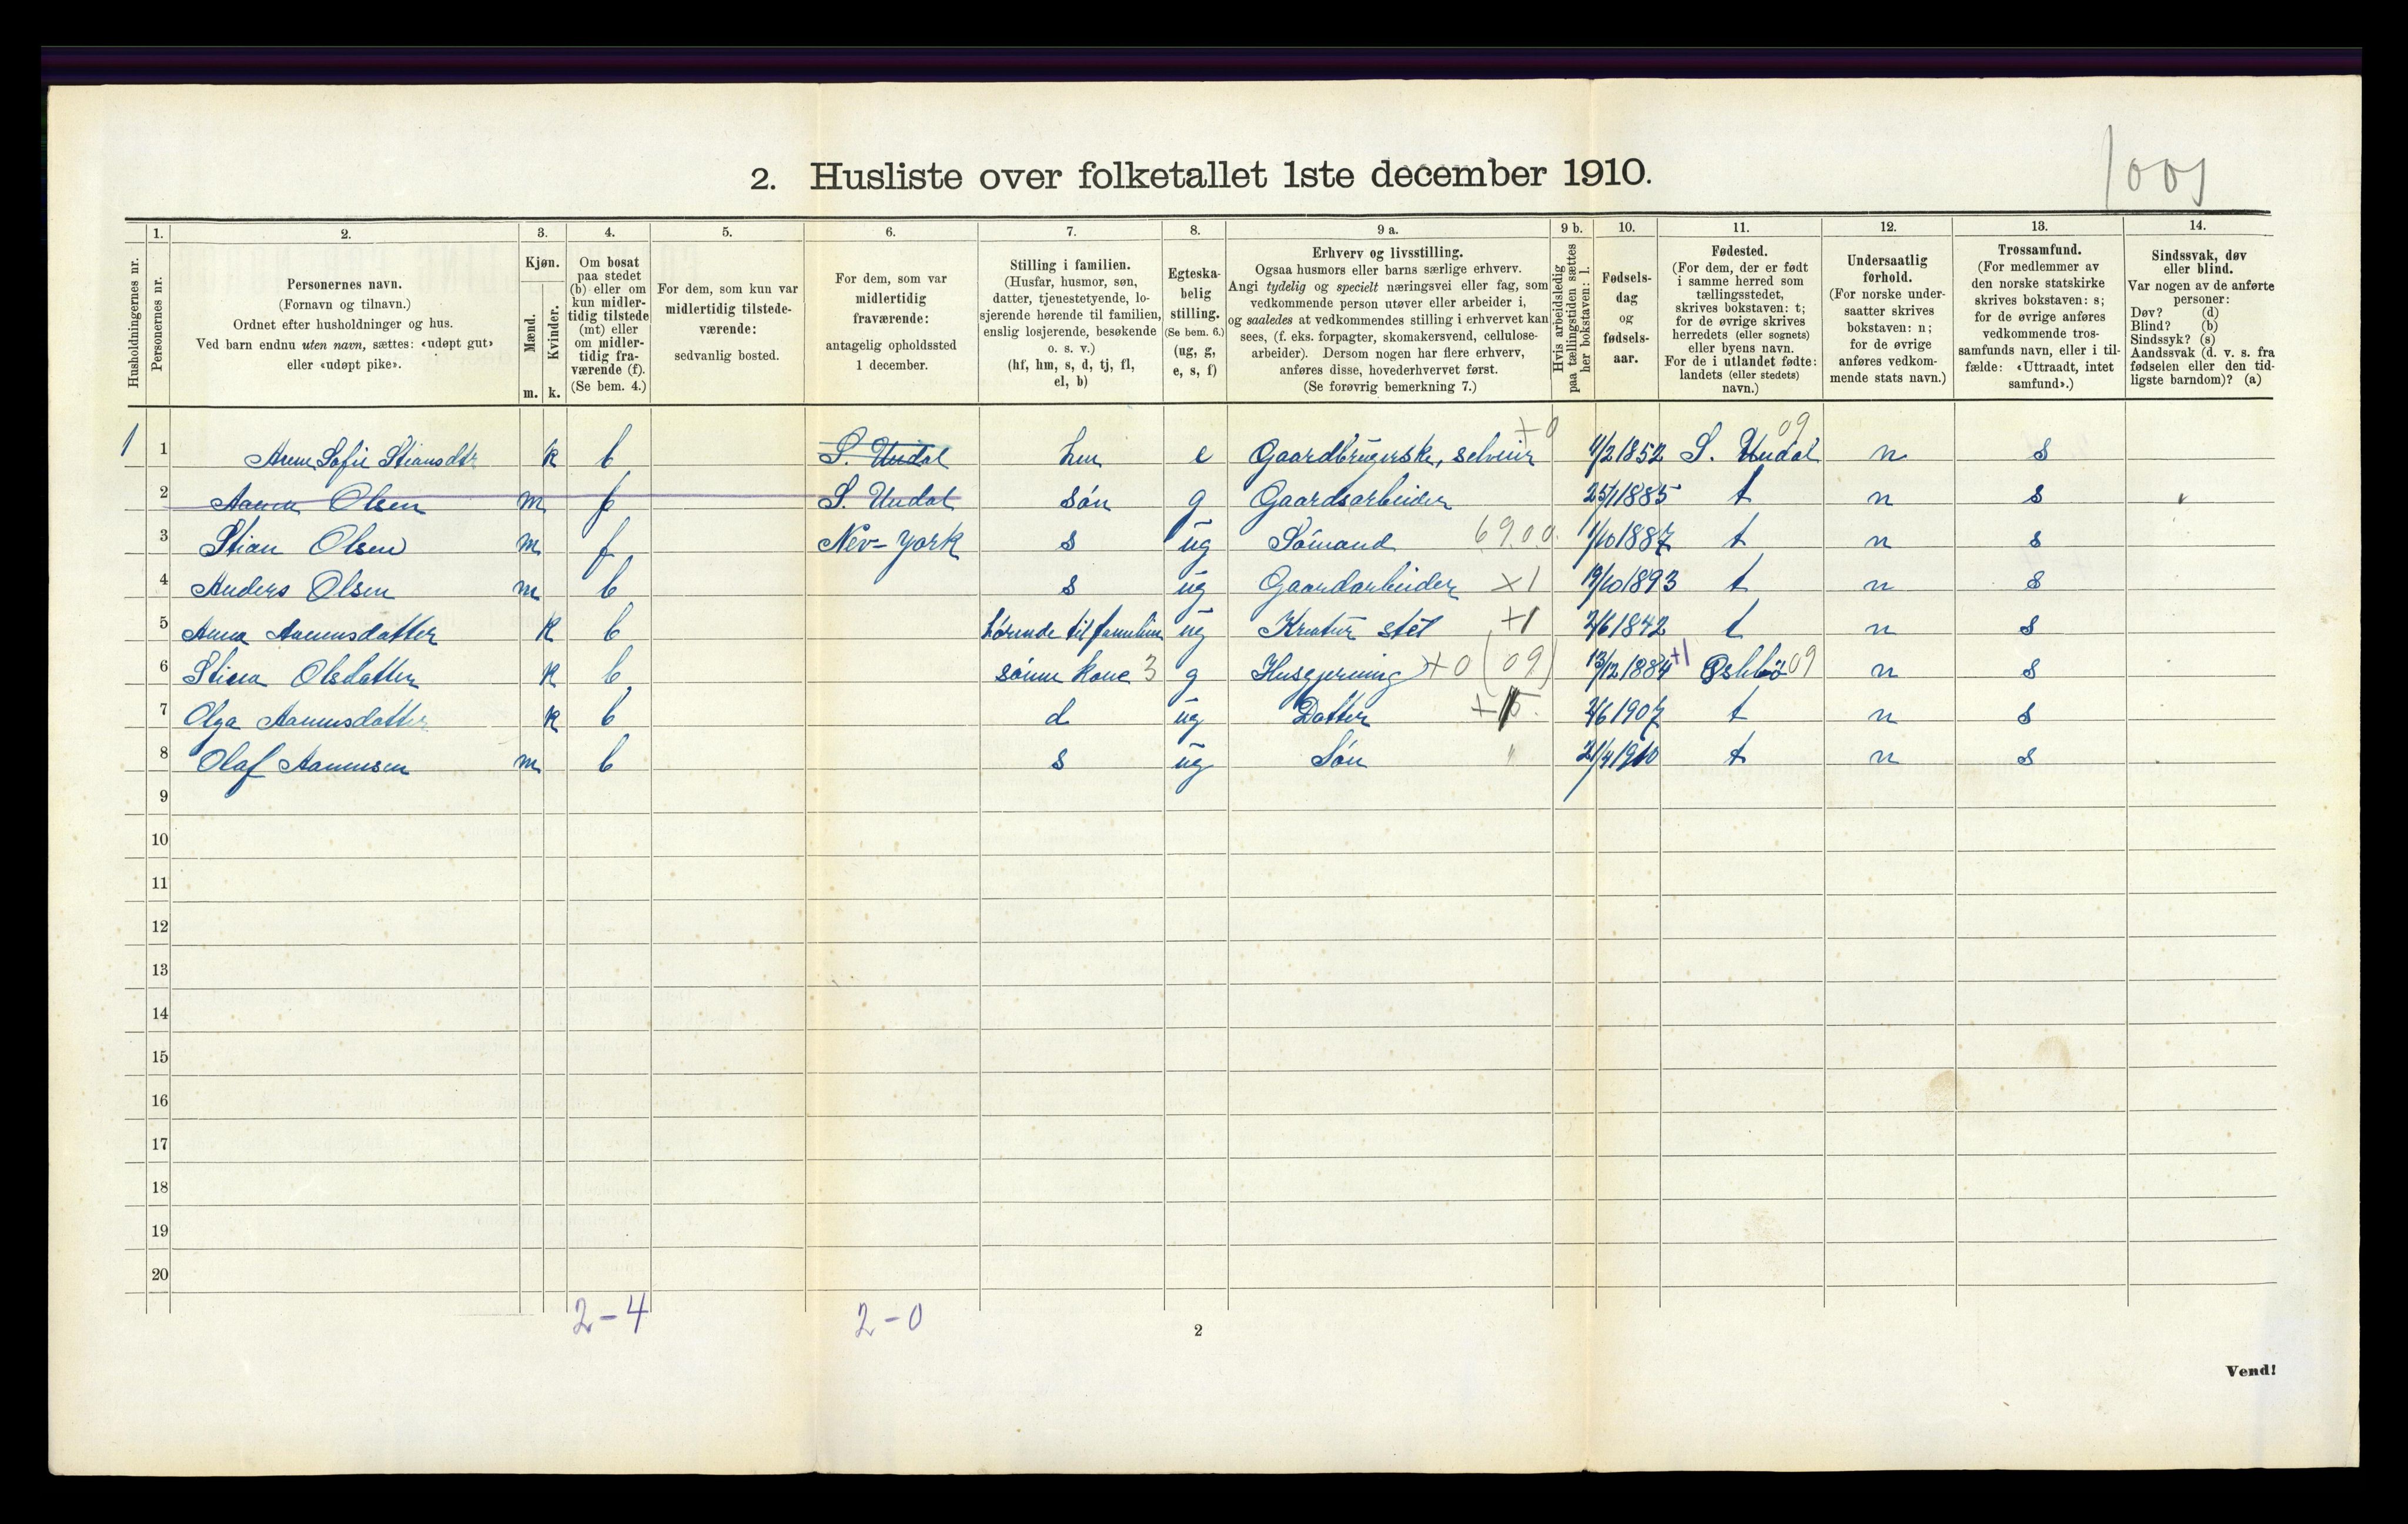 2. Husliste over folketallet 1ste december 1910.
1001
Husholdningernes nr.
1. Personernes nr.
2. Personernes navn.
(Fornavn og tilnavn.)
Ordnet efter husholdninger og hus.
Ved barn endnu uten navn, sættes: «udøpt gut»
eller «udøpt pike».
3. Kjøn.
Mænd. Kvinder.
m. k.
4. Om bosat
paa stedet
(b) eller om
kun midler-
tidig tilstede
(mt) eller
om midler-
tidig fra-
værende (f).
(Se bem. 4.)
5. For dem, som kun var
midlertidig tilstede-
værende:
sedvanlig bosted.
6. For dem, som var
midlertidig
fraværende:
antagelig opholdssted
1 december.
7. Stilling i familien.
(Husfar, husmor, søn,
datter, tjenestetyende, lo-
sjerende hørende til familien,
enslig losjerende, besøkende
o. s. v.)
(hf, hm, s, d, tj, fl,
el, b)
8. Egteska-
belig
stilling.
(Se bem. 6.)
(ug, g,
e, s, f)
9 a. Erhverv og livsstilling.
Ogsaa husmors eller barns særlige erhverv.
Angi tydelig og specielt næringsvei eller fag, som
vedkommende person utøver eller arbeider i,
og saaledes at vedkommendes stilling i erhvervet kan
sees, (f. eks. forpagter, skomakersvend, cellulose-
arbeider). Dersom nogen har flere erhverv,
anføres disse, hovederhvervet først.
(Se forøvrig bemerkning 7.)
9 b. Hvis arbeidsledig
paa tællingstiden sættes
her bokstaven: l.
10. Fødsels-
dag
og
fødsels-
aar.
11. Fødested.
(For dem, der er født
i samme herred som
tællingsstedet,
skrives bokstaven: t;
for de øvrige skrives
herredets (eller sognets)
eller byens navn.
For de i utlandet fødte:
landets (eller stedets)
navn.)
12. Undersaatlig
forhold.
(For norske under-
saatter skrives
bokstaven: n;
for de øvrige
anføres vedkom-
mende stats navn.)
13. Trossamfund.
(For medlemmer av
den norske statskirke
skrives bokstaven: s;
for de øvrige anføres
vedkommende tros-
samfunds navn, eller i til-
fælde: «Uttraadt, intet
samfund».)
14. Sindssvak, døv
eller blind.
Var nogen av de anførte
personer:
Døv? (d)
Blind? (b)
Sindssyk? (s)
Aandssvak (d. v. s. fra
fødselen eller den tid-
ligste barndom)? (a)
1 1 Anne Sofie Stiansdtr k b S. Undal hm e Gaardbrugerske, selveier +0 1/2 1852 S. Undal 09 n s
2 Aanen Olsen m f S. Undal søn g Gaardsarbeider 25/1 1885 t n s
3 Stian Olsen m f Nev-York s ug Sømand 69.00. 1/10 1887 t n s
4 Anders Olsen m b s ug Gaardarbeider x1 19/10 1893 t n s
5 Anna Aanensdatter k b hørende til familien ug Kreatur stel +1 2/6 1842 t n s
6 Stina Olsdatter k b sønne kone 3 g Husgjerning +0 (09) 13/12 1884 +1 09 n s
7 Olga Aanensdatter k b d ug Datter 2/6 1907 t n s
8 Olaf Aanensen m b s ug Søn " 21/4 1910 t n s
9
10
11
12
13
14
15
16
17
18
19
20
2-4 2-0
2
Vend!